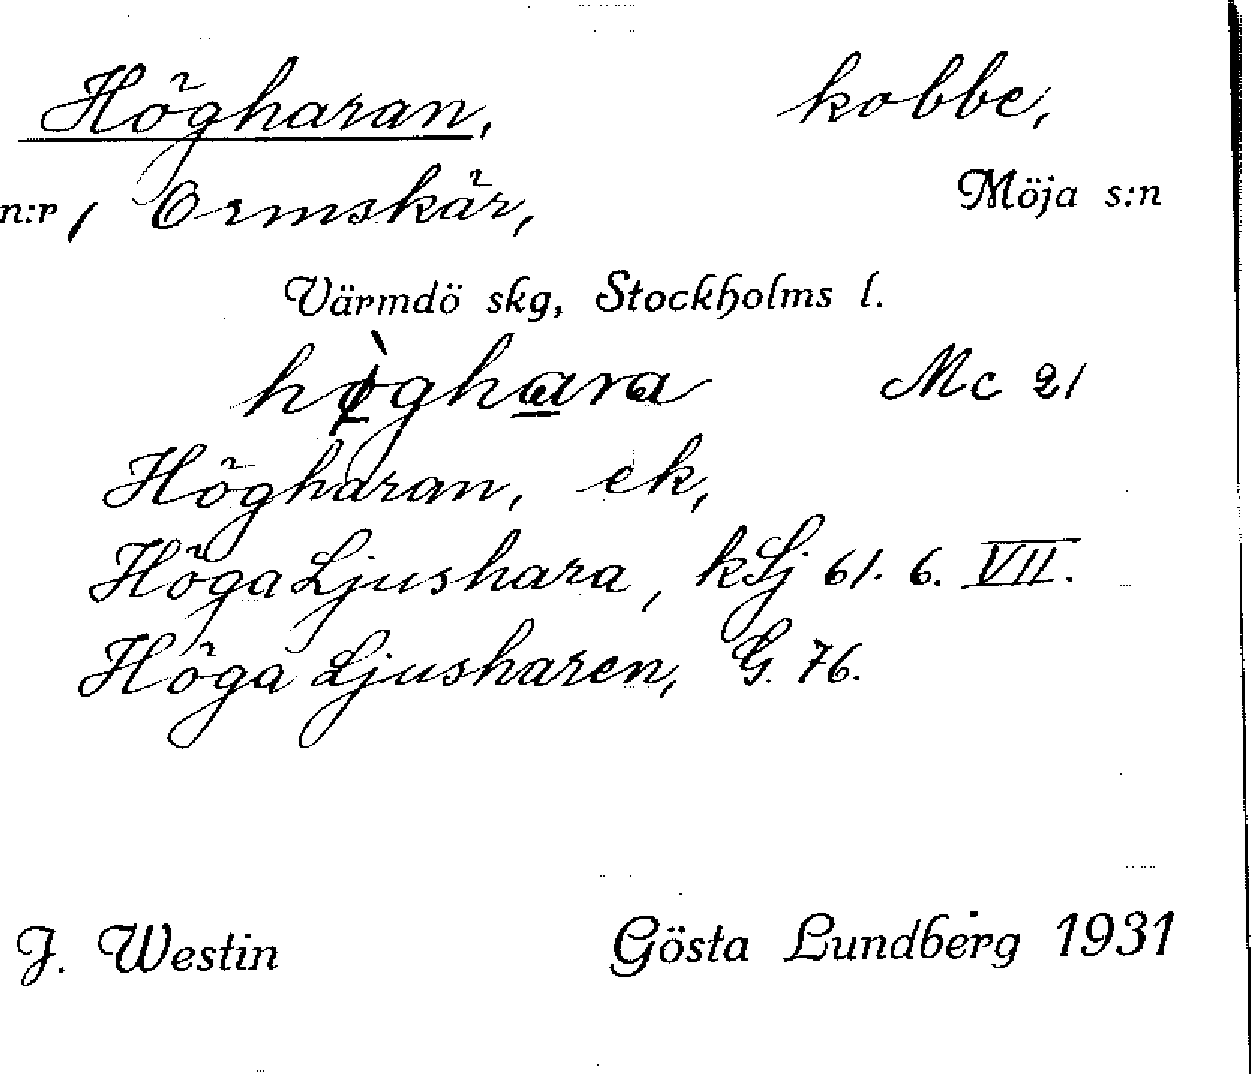 Högharan, kobbe,
n:r 1 Ormskär, Möja s:n
Värmdö skg, Stockholms l.
hø̀ghara Mc 21
Högharan, ek,
Höga Ljushara, kLj 61. 6. VII.
Höga Ljusharen, G. 76.
J. Westin Gösta Lundberg 1931